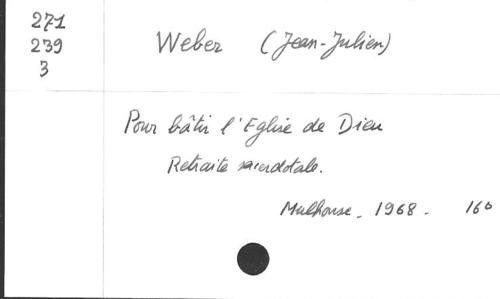 271
239
3
Weber (Jean-Julien)
Pour bâtir l'Eglise de Dieu
Retraite sacerdotale.
Mulhouse. 1968. 16°